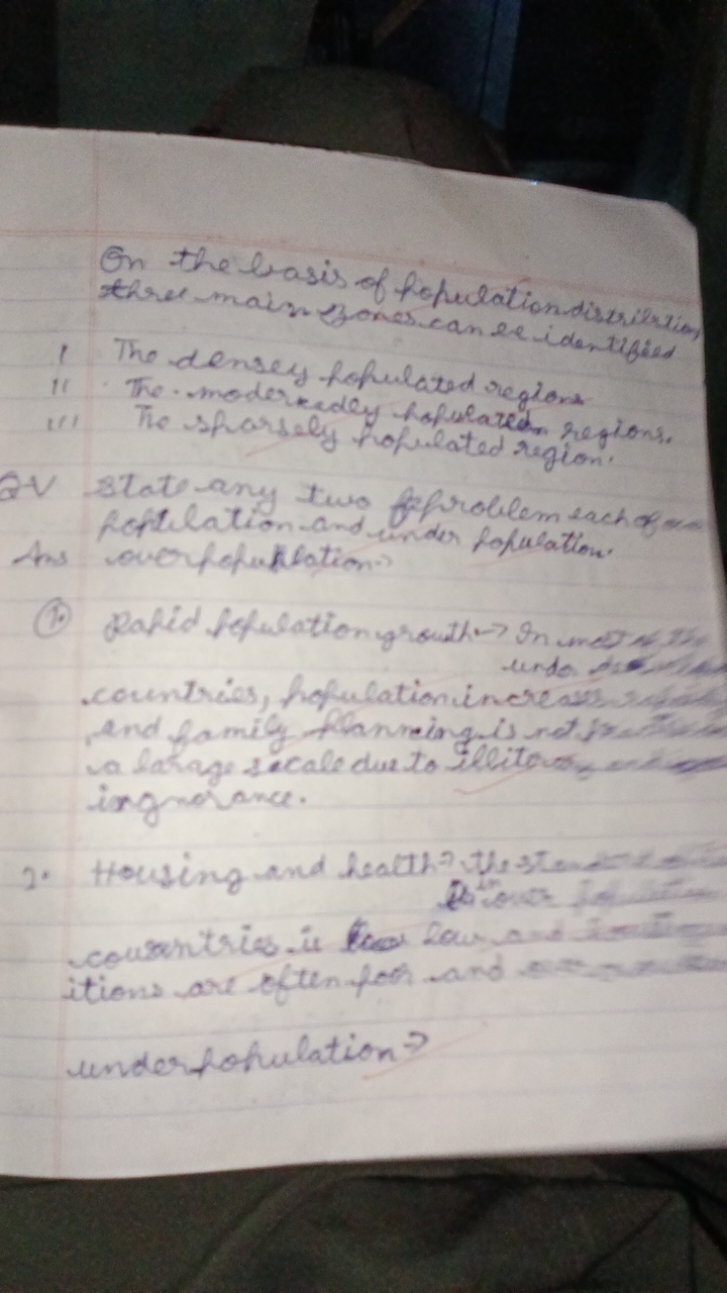 On the basis of population distribution,
three main zones can be identified
I The densey populated regions
II The moderkedly populated regions.
III The sparsely populated region.
Q-V State any two problem each of
poptulation and under population.
Ans overpopulation→
1. Rapid population growth→ In most of the
under
countries, population increases
and family planning is not
a larage scale due to
ingnorance.
2. Housing and health→ the
in over
countries is low and
itions are often poor and
underpopulation→